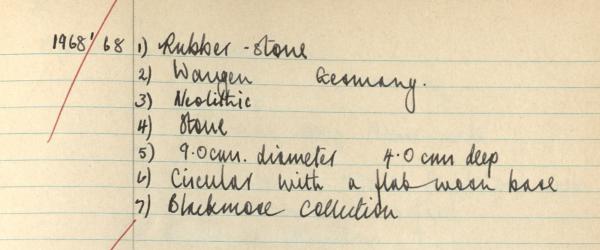 1968/68 1) Rubber-stone
2) Wangen Germany.
3) Neolithic
4) Stone
5) 9.0cm. diameter 4.0cm deep
6) Circular with a flat worn base
7) Blackmore Collection